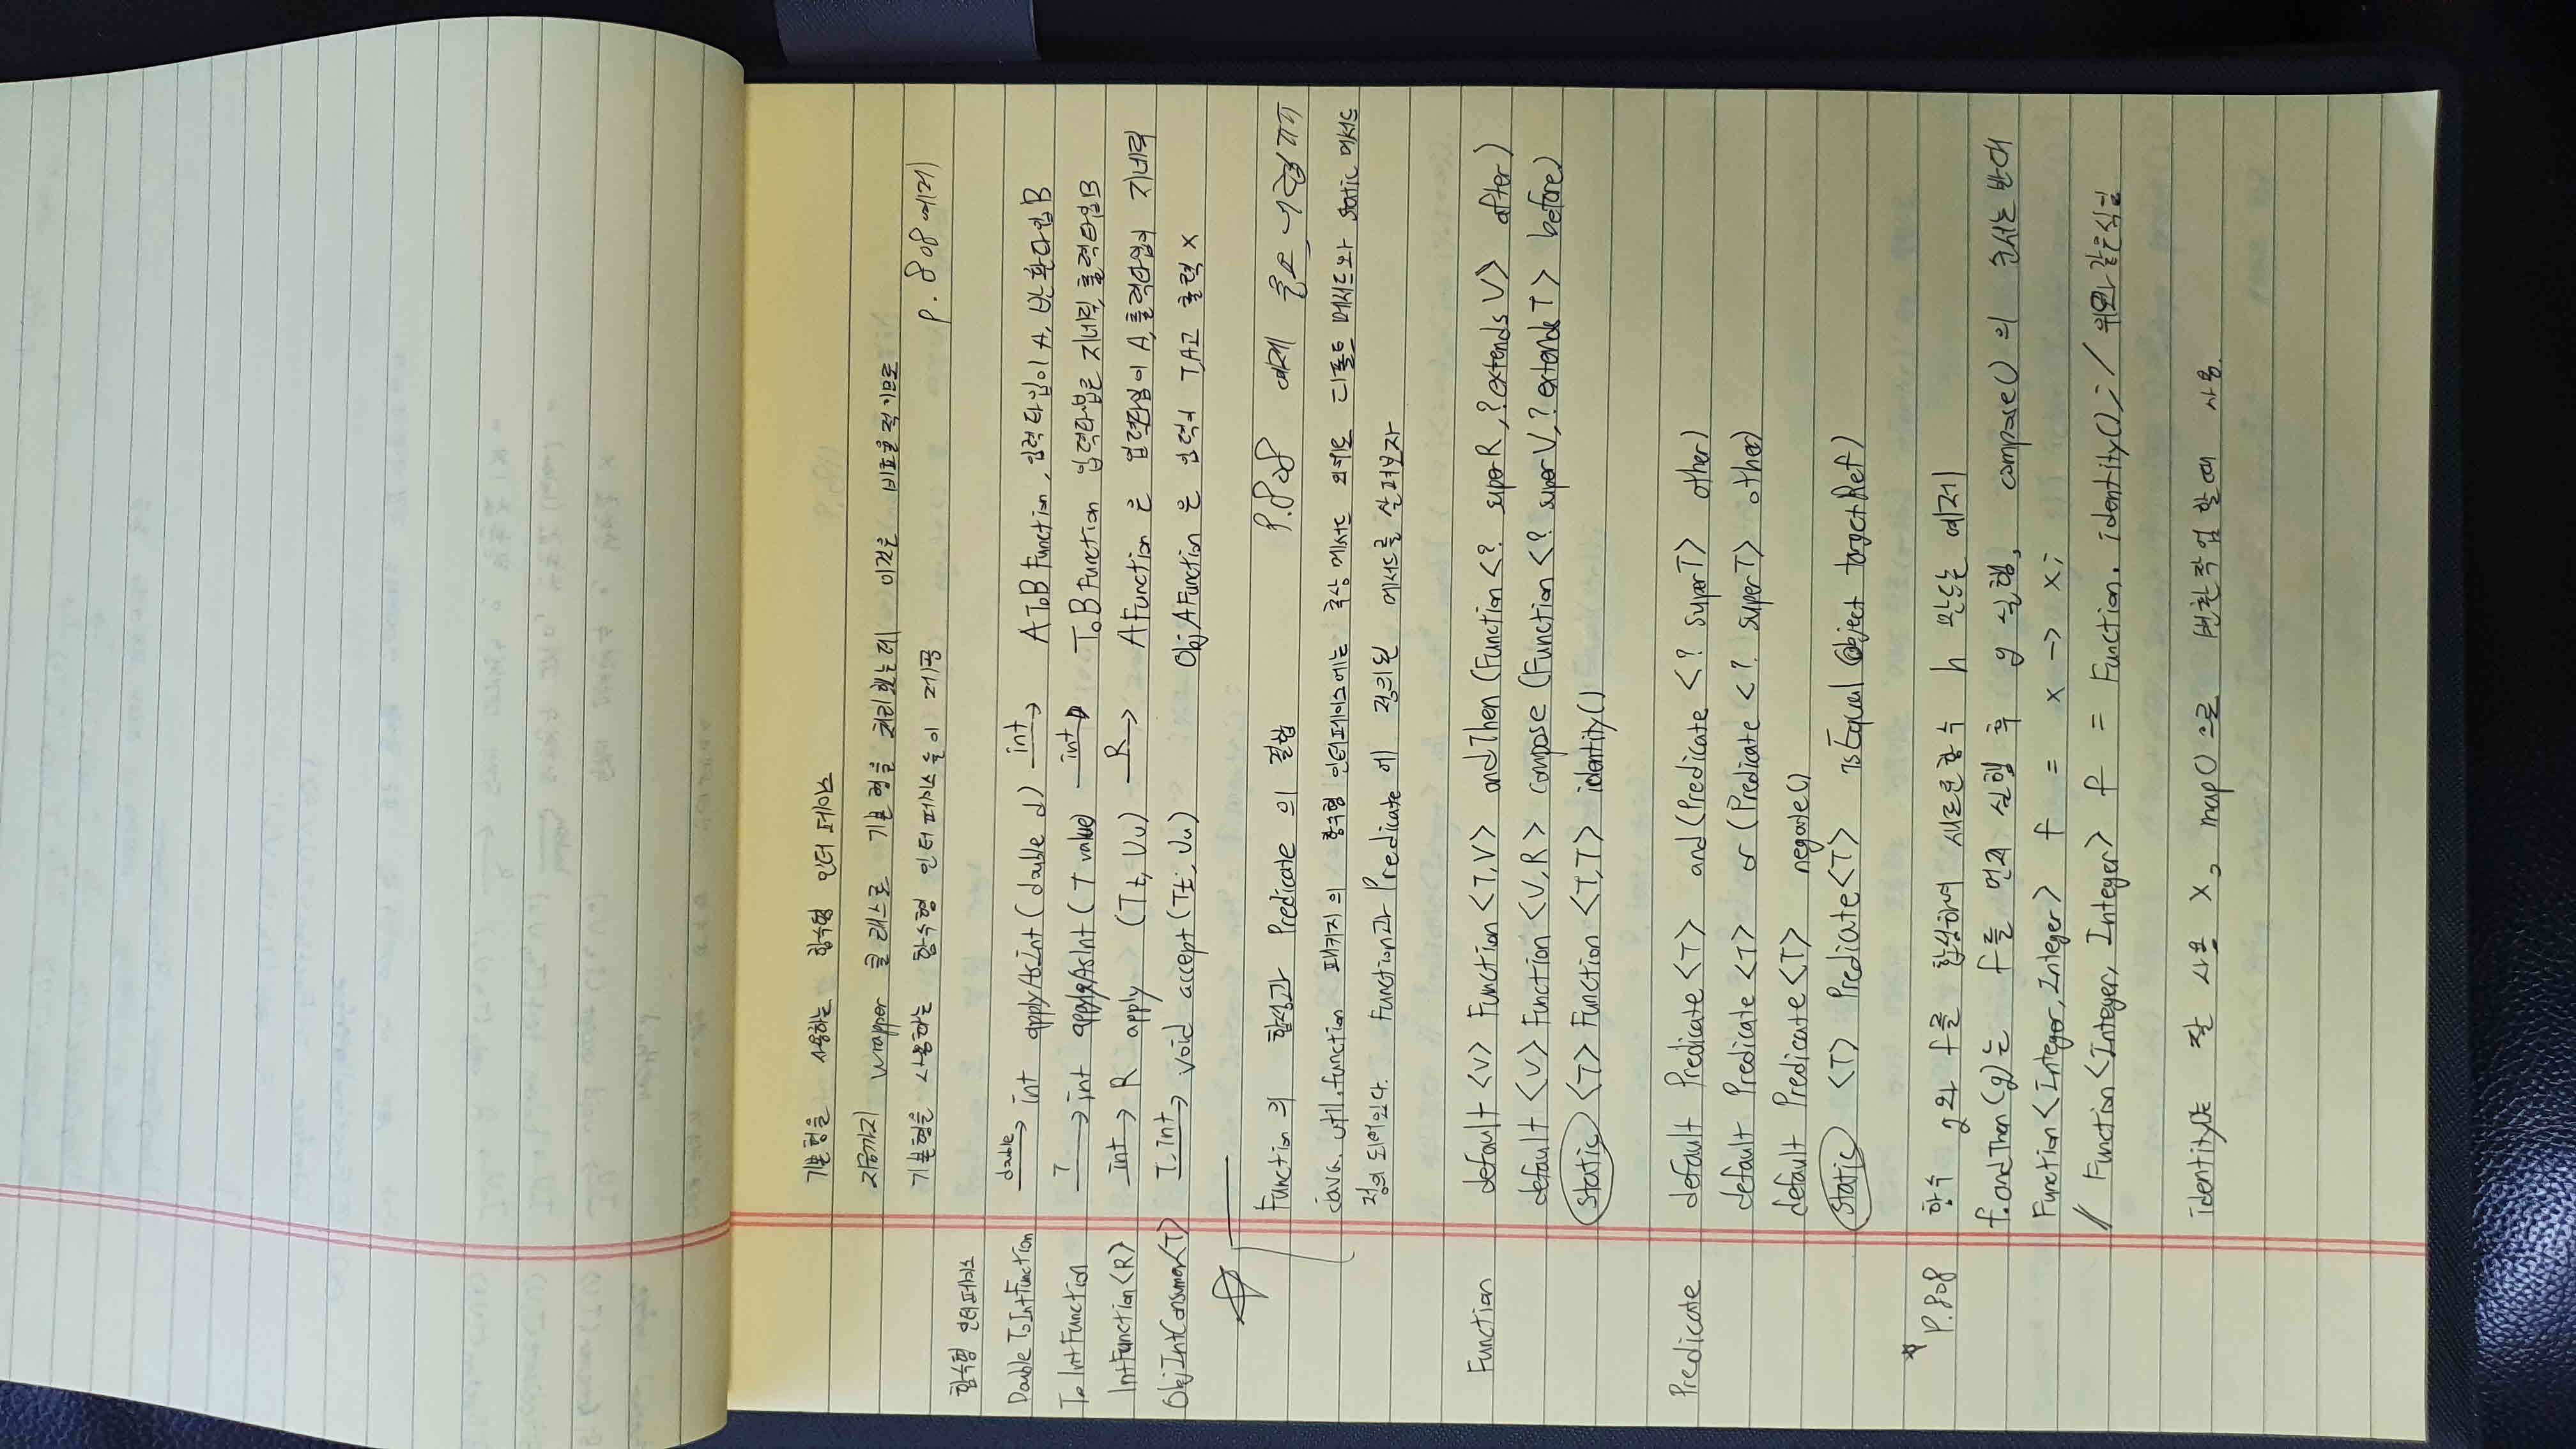 기본형을 사용하는 함수형 인터페이스
지금까지 wrapper 클래스로 기본형을 처리했는데 이것은 비효율적이므로
기본형을 사용하는 함수형 인터페이스들이 제공 p.808 예제
함수형 인터페이스
DoubleToIntFunction double→ int applyAsInt(double d) int→ AToBFunction, 입력타입이 A, 반환타입 B
ToIntFunction T→ int applyAsInt(T value) int→ ToBFunction 입력타입은 지네릭, 출력타입B
IntFunction<R> int→ R apply (T t, U u) R→ AFunction은 입력타입이 A, 출력타입이 지네릭
ObjIntConsumer<T> T, int→ void accept(T t, U u) ObjAFunction은 입력이 T,A고 출력 X
Function의 합성과 Predicate의 결합 P.808 예제
java.util.function 패키지의 함수형 인터페이스에는 추상메서드 외에도 디폴트 메서드와 static 메서드
정의 되어있다. Function과 Predicate에 정의된 메서드를 살펴보자
Function default <V> Function <T,V> andThen (Function <? super R, ? extends V> after)
default <V> Function <V,R> compose (Function <? super V, ? extends T> before)
static <T> Function <T,T> identity()
Predicate default Predicate <T> and (Predicate <? super T> other)
default Predicate <T> or (Predicate <? super T> other)
default Predicate <T> negate()
static <T> Prediate<T> isEqual (Object targetRef)
P.808 함수 g와 f를 합성하여 새로운함수 h 만드는 예제
f.andThen(g)는 f를 먼저 실행 후 g 실행, compose()의 순서는 반대
Function<Integer, Integer> f = x -> x;
// Function<Integer, Integer> f = Function.identity(); / 위와 같은식
identity는 잘 사용 X, map()으로 변환작업 할때 사용.